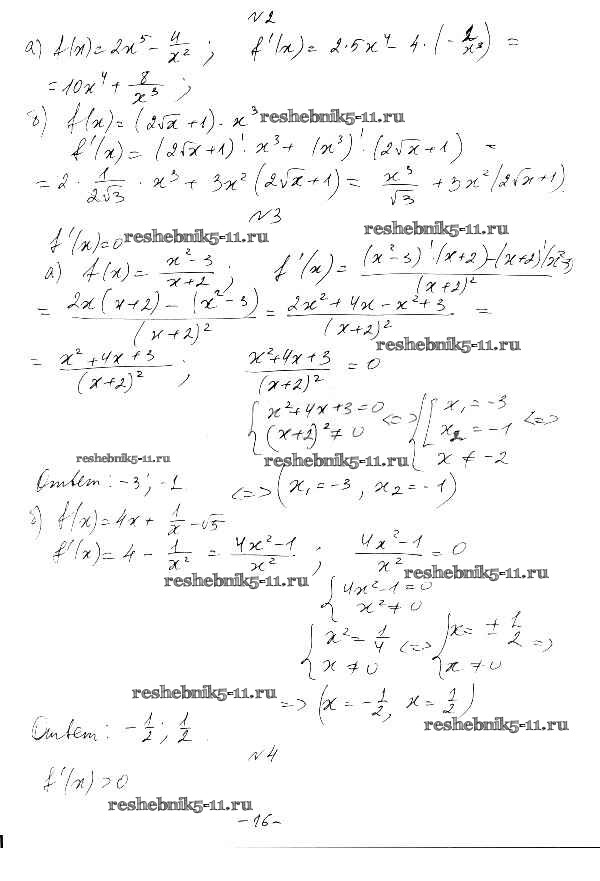 №2
а) f(x) = 2x⁵ - 4/x² ; f'(x) = 2·5x⁴ - 4·(-2/x³) =
= 10x⁴ + 8/x³ ;
б) f(x) = (2√x + 1)·x³ reshebnik5-11.ru
f'(x) = (2√x + 1)'·x³ + (x³)'(2√x + 1) =
= 2·1/(2√3)·x³ + 3x²(2√x + 1) = x³/√3 + 3x²(2√x + 1)
№3
f'(x) = 0 reshebnik5-11.ru reshebnik5-11.ru
а) f(x) = (x² - 3)/(x + 2) ; f'(x) = ((x² - 3)'(x + 2) - (x + 2)'(x² - 3))/(x + 2)²
= (2x(x + 2) - (x² - 3))/(x + 2)² = (2x² + 4x - x² + 3)/(x + 2)² =
reshebnik5-11.ru
= (x² + 4x + 3)/(x + 2)² ; (x² + 4x + 3)/(x + 2)² = 0
{ x² + 4x + 3 = 0 <=> { [ x₁ = -3 <=>
(x + 2)² ≠ 0 x₂ = -1
reshebnik5-11.ru reshebnik5-11.ru x ≠ -2
Ответ: -3; -1 <=> (x₁ = -3, x₂ = -1)
б) f(x) = 4x + 1/x - √5
f'(x) = 4 - 1/x² = (4x² - 1)/x² ; (4x² - 1)/x² = 0
reshebnik5-11.ru reshebnik5-11.ru
{ 4x² - 1 = 0
x² ≠ 0
{ x² = 1/4 <=> { x = ± 1/2 =>
x ≠ 0 x ≠ 0
reshebnik5-11.ru => (x = -1/2, x = 1/2)
reshebnik5-11.ru
Ответ: -1/2 ; 1/2
№4
f'(x) > 0
reshebnik5-11.ru
-16-